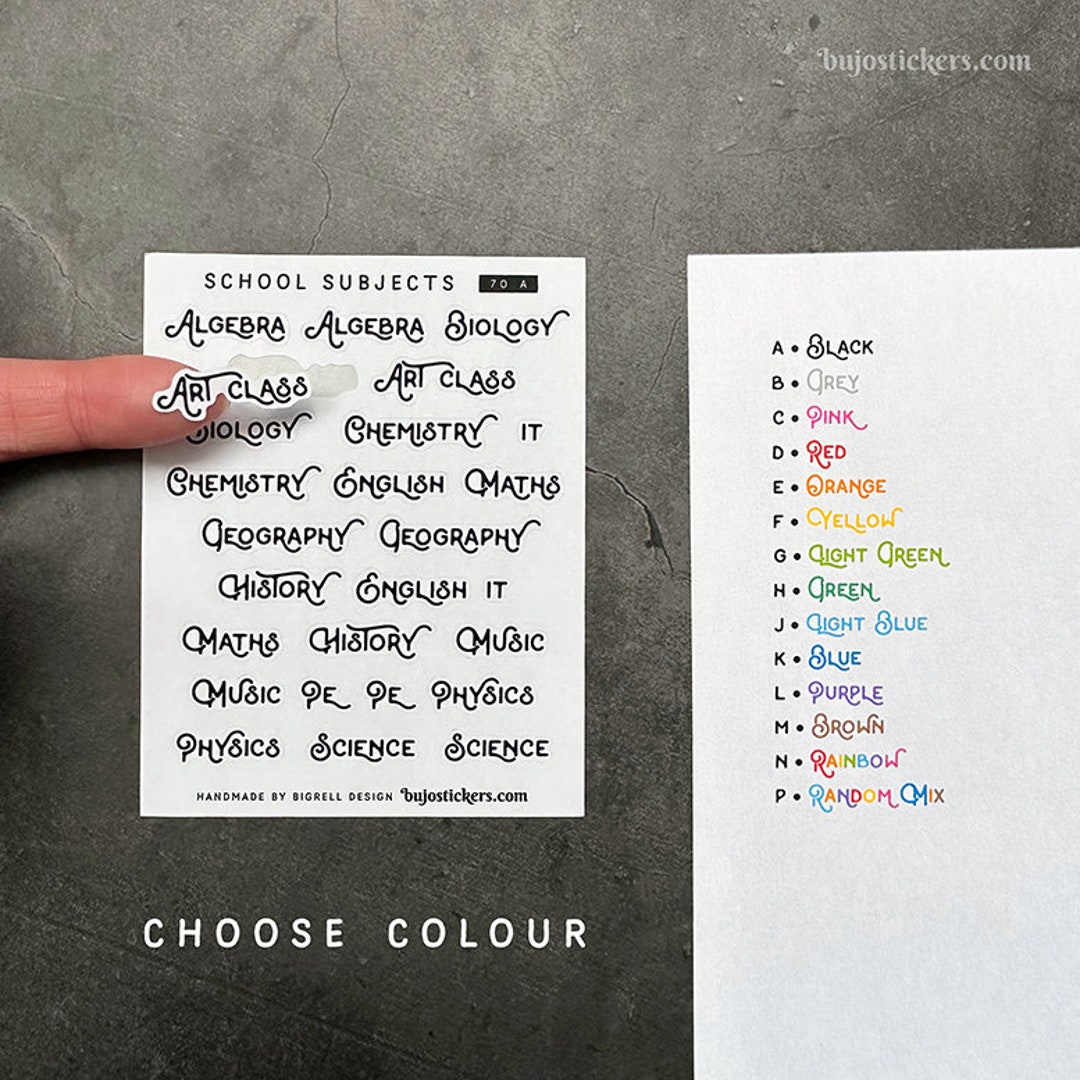 bujostickers.com
SCHOOL SUBJECTS 70 A
ALGEBRA ALGEBRA BIOLOGY
ART CLASS ART CLASS
BIOLOGY CHEMISTRY IT
CHEMISTRY ENGLISH MATHS
GEOGRAPHY GEOGRAPHY
HISTORY ENGLISH IT
MATHS HISTORY MUSIC
MUSIC PE PE PHYSICS
PHYSICS SCIENCE SCIENCE
HANDMADE BY BIGRELL DESIGN bujostickers.com
A • BLACK
B • GREY
C • PINK
D • RED
E • ORANGE
F • YELLOW
G • LIGHT GREEN
H • GREEN
J • LIGHT BLUE
K • BLUE
L • PURPLE
M • BROWN
N • RAINBOW
P • RANDOM MIX
CHOOSE COLOUR